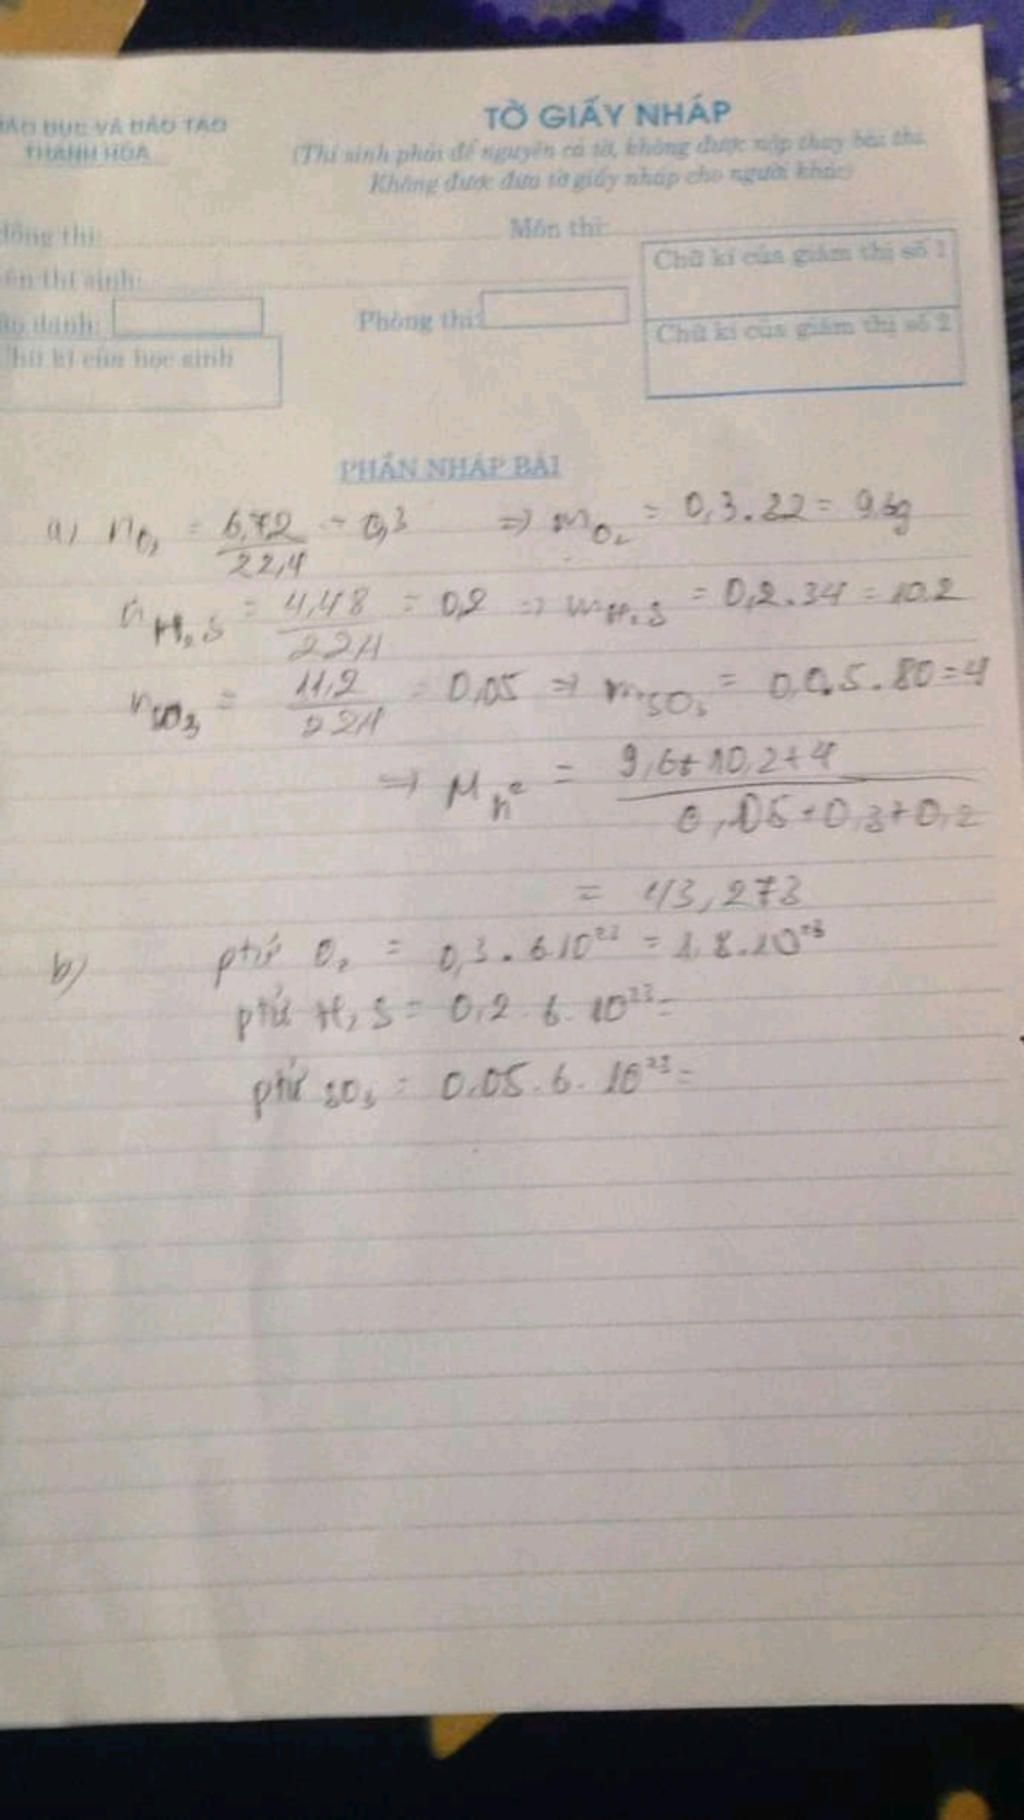 DỤC VÀ ĐÀO TẠO
THANH HÓA
TỜ GIẤY NHÁP
(Thí sinh phải để nguyên cả tờ, không được nộp thay bài thi.
Không được đưa tờ giấy nháp cho người khác)
đồng thi:
Môn thi:
ên thí sinh:
áo danh:
Phòng thi:
Chữ kí của giám thị số 1
Chữ kí của giám thị số 2
hữ kí của học sinh
PHẦN NHÁP BÀI
a) nO₂ = 6,72 / 22,4 = 0,3 => mO₂ = 0,3.32 = 9,6g
nH₂S = 4,48 / 22,4 = 0,2 => mH₂S = 0,2.34 = 10.2
nSO₃ = 11,2 / 22,4 = 0,05 => mSO₃ = 0,05.80 = 4
=> M h² = 9,6+10,2+4 / 0,05+0,3+0,2
= 43,273
b) ptử O₂ = 0,3.6.10²³ = 1,8.10²³
ptử H₂S = 0,2.6.10²³ =
ptử SO₃ = 0.05.6.10²³ =